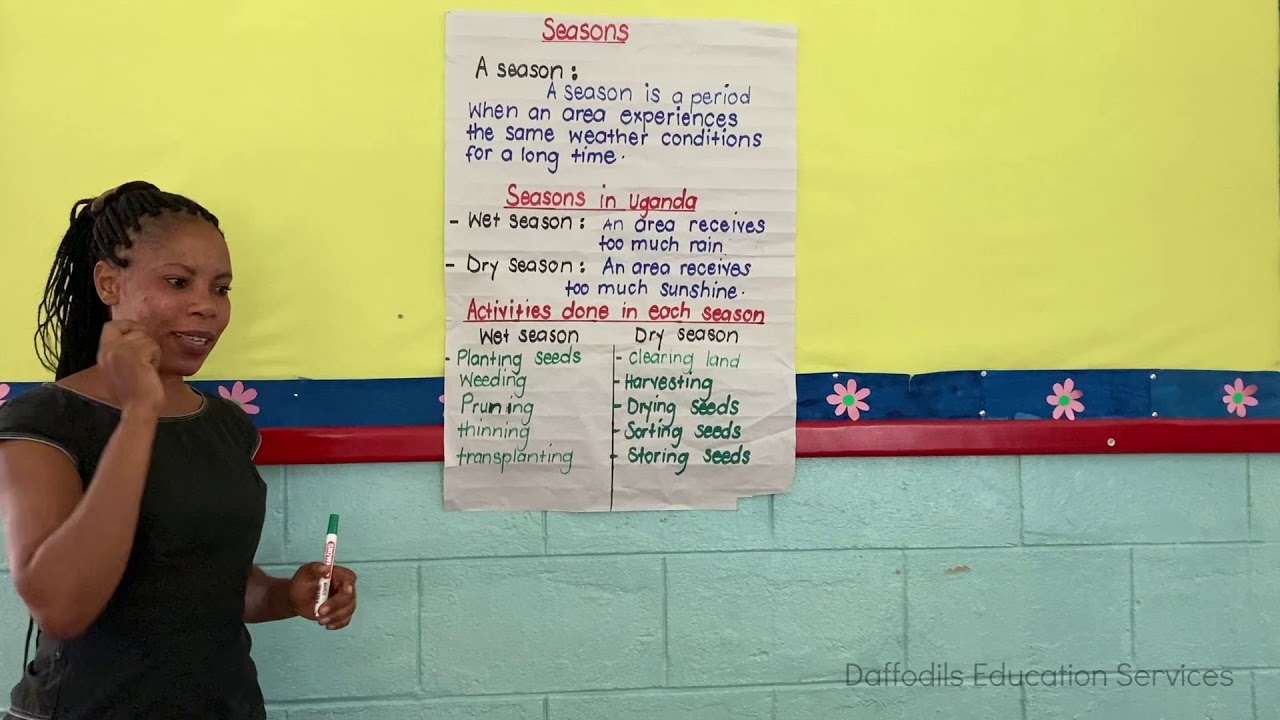 Seasons
A season:
A season is a period
When an area experiences
the same weather conditions
for a long time.
Seasons in Uganda
- Wet season: An area receives
too much rain
- Dry season: An area receives
too much sunshine.
Activities done in each season
Wet season
- Planting seeds
Weeding
Pruning
thinning
transplanting
Dry season
- clearing land
- Harvesting
- Drying seeds
- Sorting seeds
- Storing seeds
Daffodils Education Services